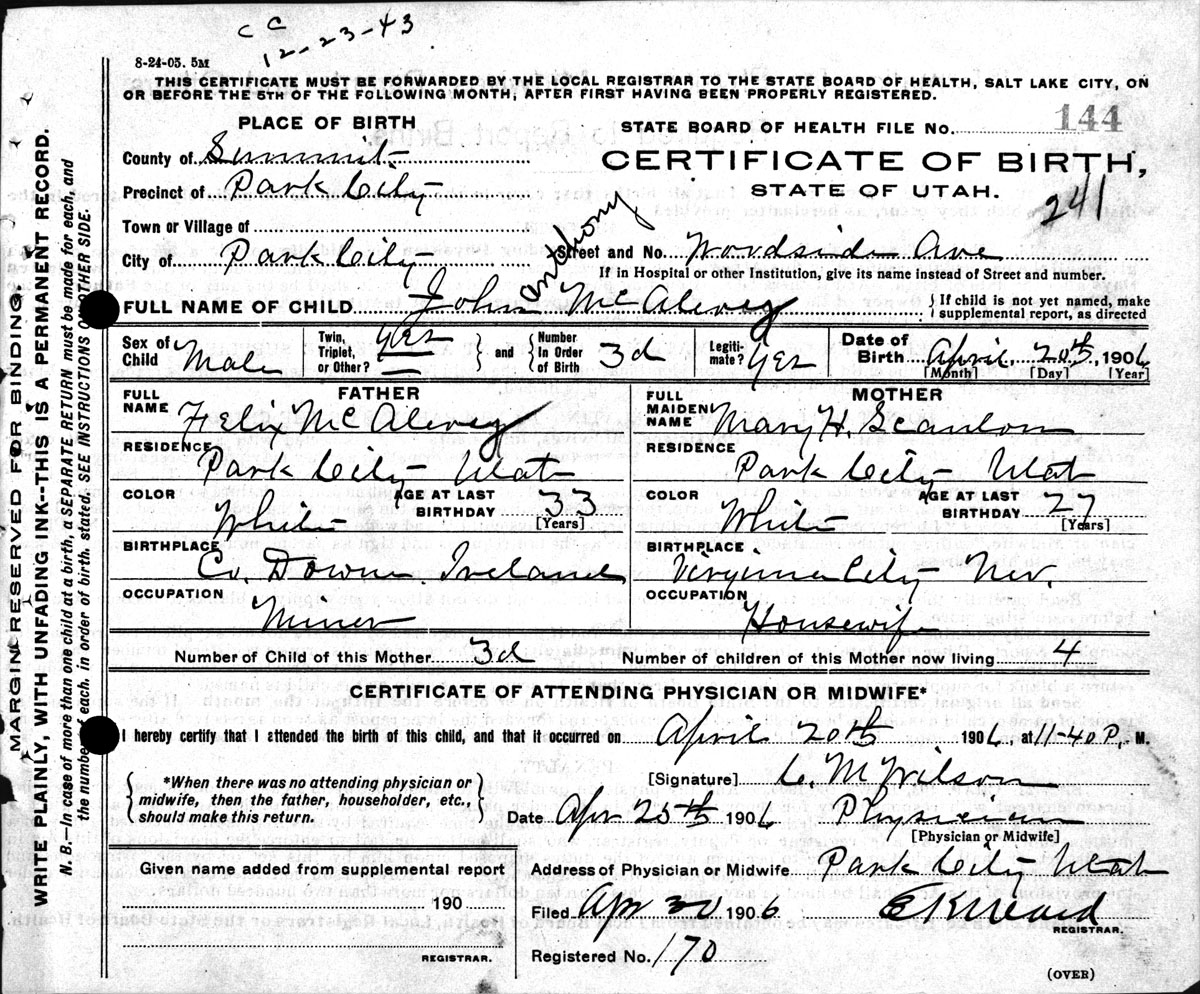 C C
12-23-43
8-24-05. 5M
THIS CERTIFICATE MUST BE FORWARDED BY THE LOCAL REGISTRAR TO THE STATE BOARD OF HEALTH, SALT LAKE CITY, ON
OR BEFORE THE 5TH OF THE FOLLOWING MONTH, AFTER FIRST HAVING BEEN PROPERLY REGISTERED.
PLACE OF BIRTH
STATE BOARD OF HEALTH FILE No. 144
County of Summit
CERTIFICATE OF BIRTH,
Precinct of Park City
STATE OF UTAH.
241
Town or Village of
City of Park City
Street and No. Woodside Ave
If in Hospital or other Institution, give its name instead of Street and number.
FULL NAME OF CHILD John Anthony McAlevey
If child is not yet named, make
supplemental report, as directed
Sex of Child Male
Twin, Triplet, or Other? Yes
and
Number In Order of Birth 3d
Legiti-mate? Yes
Date of Birth April 20th, 1906
[Month] [Day] [Year]
FATHER
MOTHER
FULL NAME Felix McAlevey
FULL MAIDEN NAME Mary H. Scanlon
RESIDENCE Park City Utah
RESIDENCE Park City Utah
COLOR White
AGE AT LAST BIRTHDAY 33
[Years]
COLOR White
AGE AT LAST BIRTHDAY 27
[Years]
BIRTHPLACE Co. Down. Ireland
BIRTHPLACE Virginia City Nev.
OCCUPATION Miner
OCCUPATION Housewife
Number of Child of this Mother 3d
Number of children of this Mother now living 4
CERTIFICATE OF ATTENDING PHYSICIAN OR MIDWIFE*
I hereby certify that I attended the birth of this child, and that it occurred on April 20th 1906, at 11-40 P. M.
*When there was no attending physician or
midwife, then the father, householder, etc.,
should make this return.
[Signature] C. M Wilson
Date Apr 25th 1906 Physician
[Physician or Midwife]
Given name added from supplemental report
Address of Physician or Midwife Park City Utah
190
Filed Apr 30 1906
REGISTRAR.
REGISTRAR.
Registered No. 170
(OVER)
MARGIN RESERVED FOR BINDING
WRITE PLAINLY, WITH UNFADING INK--THIS IS A PERMANENT RECORD.
N. B.--In case of more than one child at a birth, a SEPARATE RETURN must be made for each, and
the number of each, in order of birth, stated. SEE INSTRUCTIONS ON OTHER SIDE.